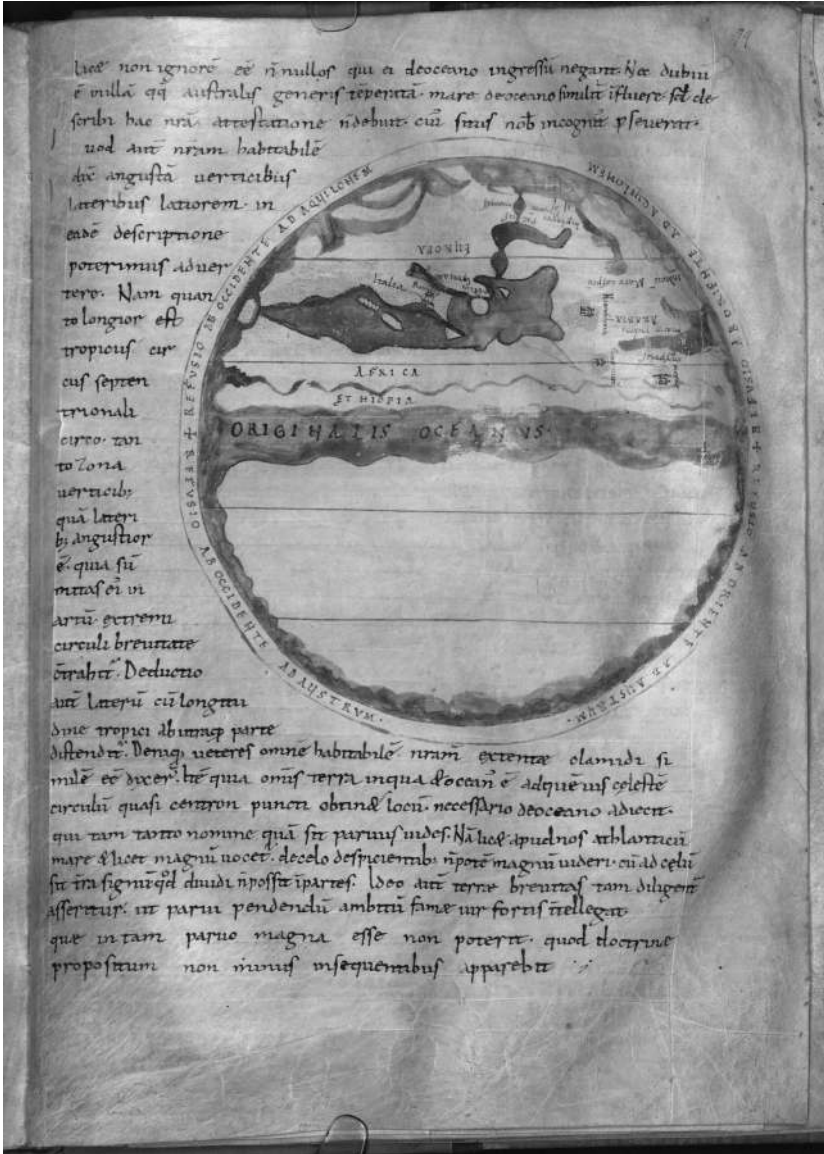 licæ non ignorē eē ñ nullos qui ei deoceano ingressū negant. Nec dubiū
ē in illā qq; australis generis tēperatā. mare deoceano similit̄ īfluere. sed de
scribi hac nrā attestatione ñ debuit. cui' situs nob incognit' pseuerat.
uod aut nram habitabilē
dix angustā uerticibus
lateribus latiorem. in
eadē descriptione
poterimus aduer
tere. Nam quan
to longior est
tropicus cir
cus septen
trionali
circo. tan
to zona
uerticib;
quā lateri
b; angustior
ē. quia sum
mitas ei' in
artū. extremi
circuli breuitate
c̄trahit̄. Deductio
aut laterū cū longitu
dine tropici ab utraq; parte
distendit̄. Deniq; ueteres omnē habitabilē nram extentæ clamidi si
milē eē dixer̄. Itē quia omīs terra in qua & oceanꝰ ē. ad quēuis celestē
circulū quasi centron puncti obtin& locū. necessario deoceano adiecit.
qui tam tanto nomine quā sit paruus uides. Nā licæ apud nos athlanticū
mare & licet magnū uocet̄. decelo despicientib; ñ potē magnū uideri. cū ad celū
sit t̄ra signū qd diuidi ñ possit ī partes. Ideo aut terræ breuitas tam diligent̄
asseritur. ut parui pendendū ambitū famæ uir fortis ītellegat.
quæ in tam paruo magna esse non poterit. quod doctrinæ
propositum non minus insequentibus apparebit
REFUSIO AB OCCIDENTE AD AQUILONEM
REFUSIO AB ORIENTE AD AQUILONEM
EUROPA
Italia
Mare caspiu
ARABIA
AFRICA
ETHIOPIA
ORIGINALIS OCEANUS
REFUSIO AB OCCIDENTE AD AUSTRUM.
REFUSIO AB ORIENTE AD AUSTRUM.